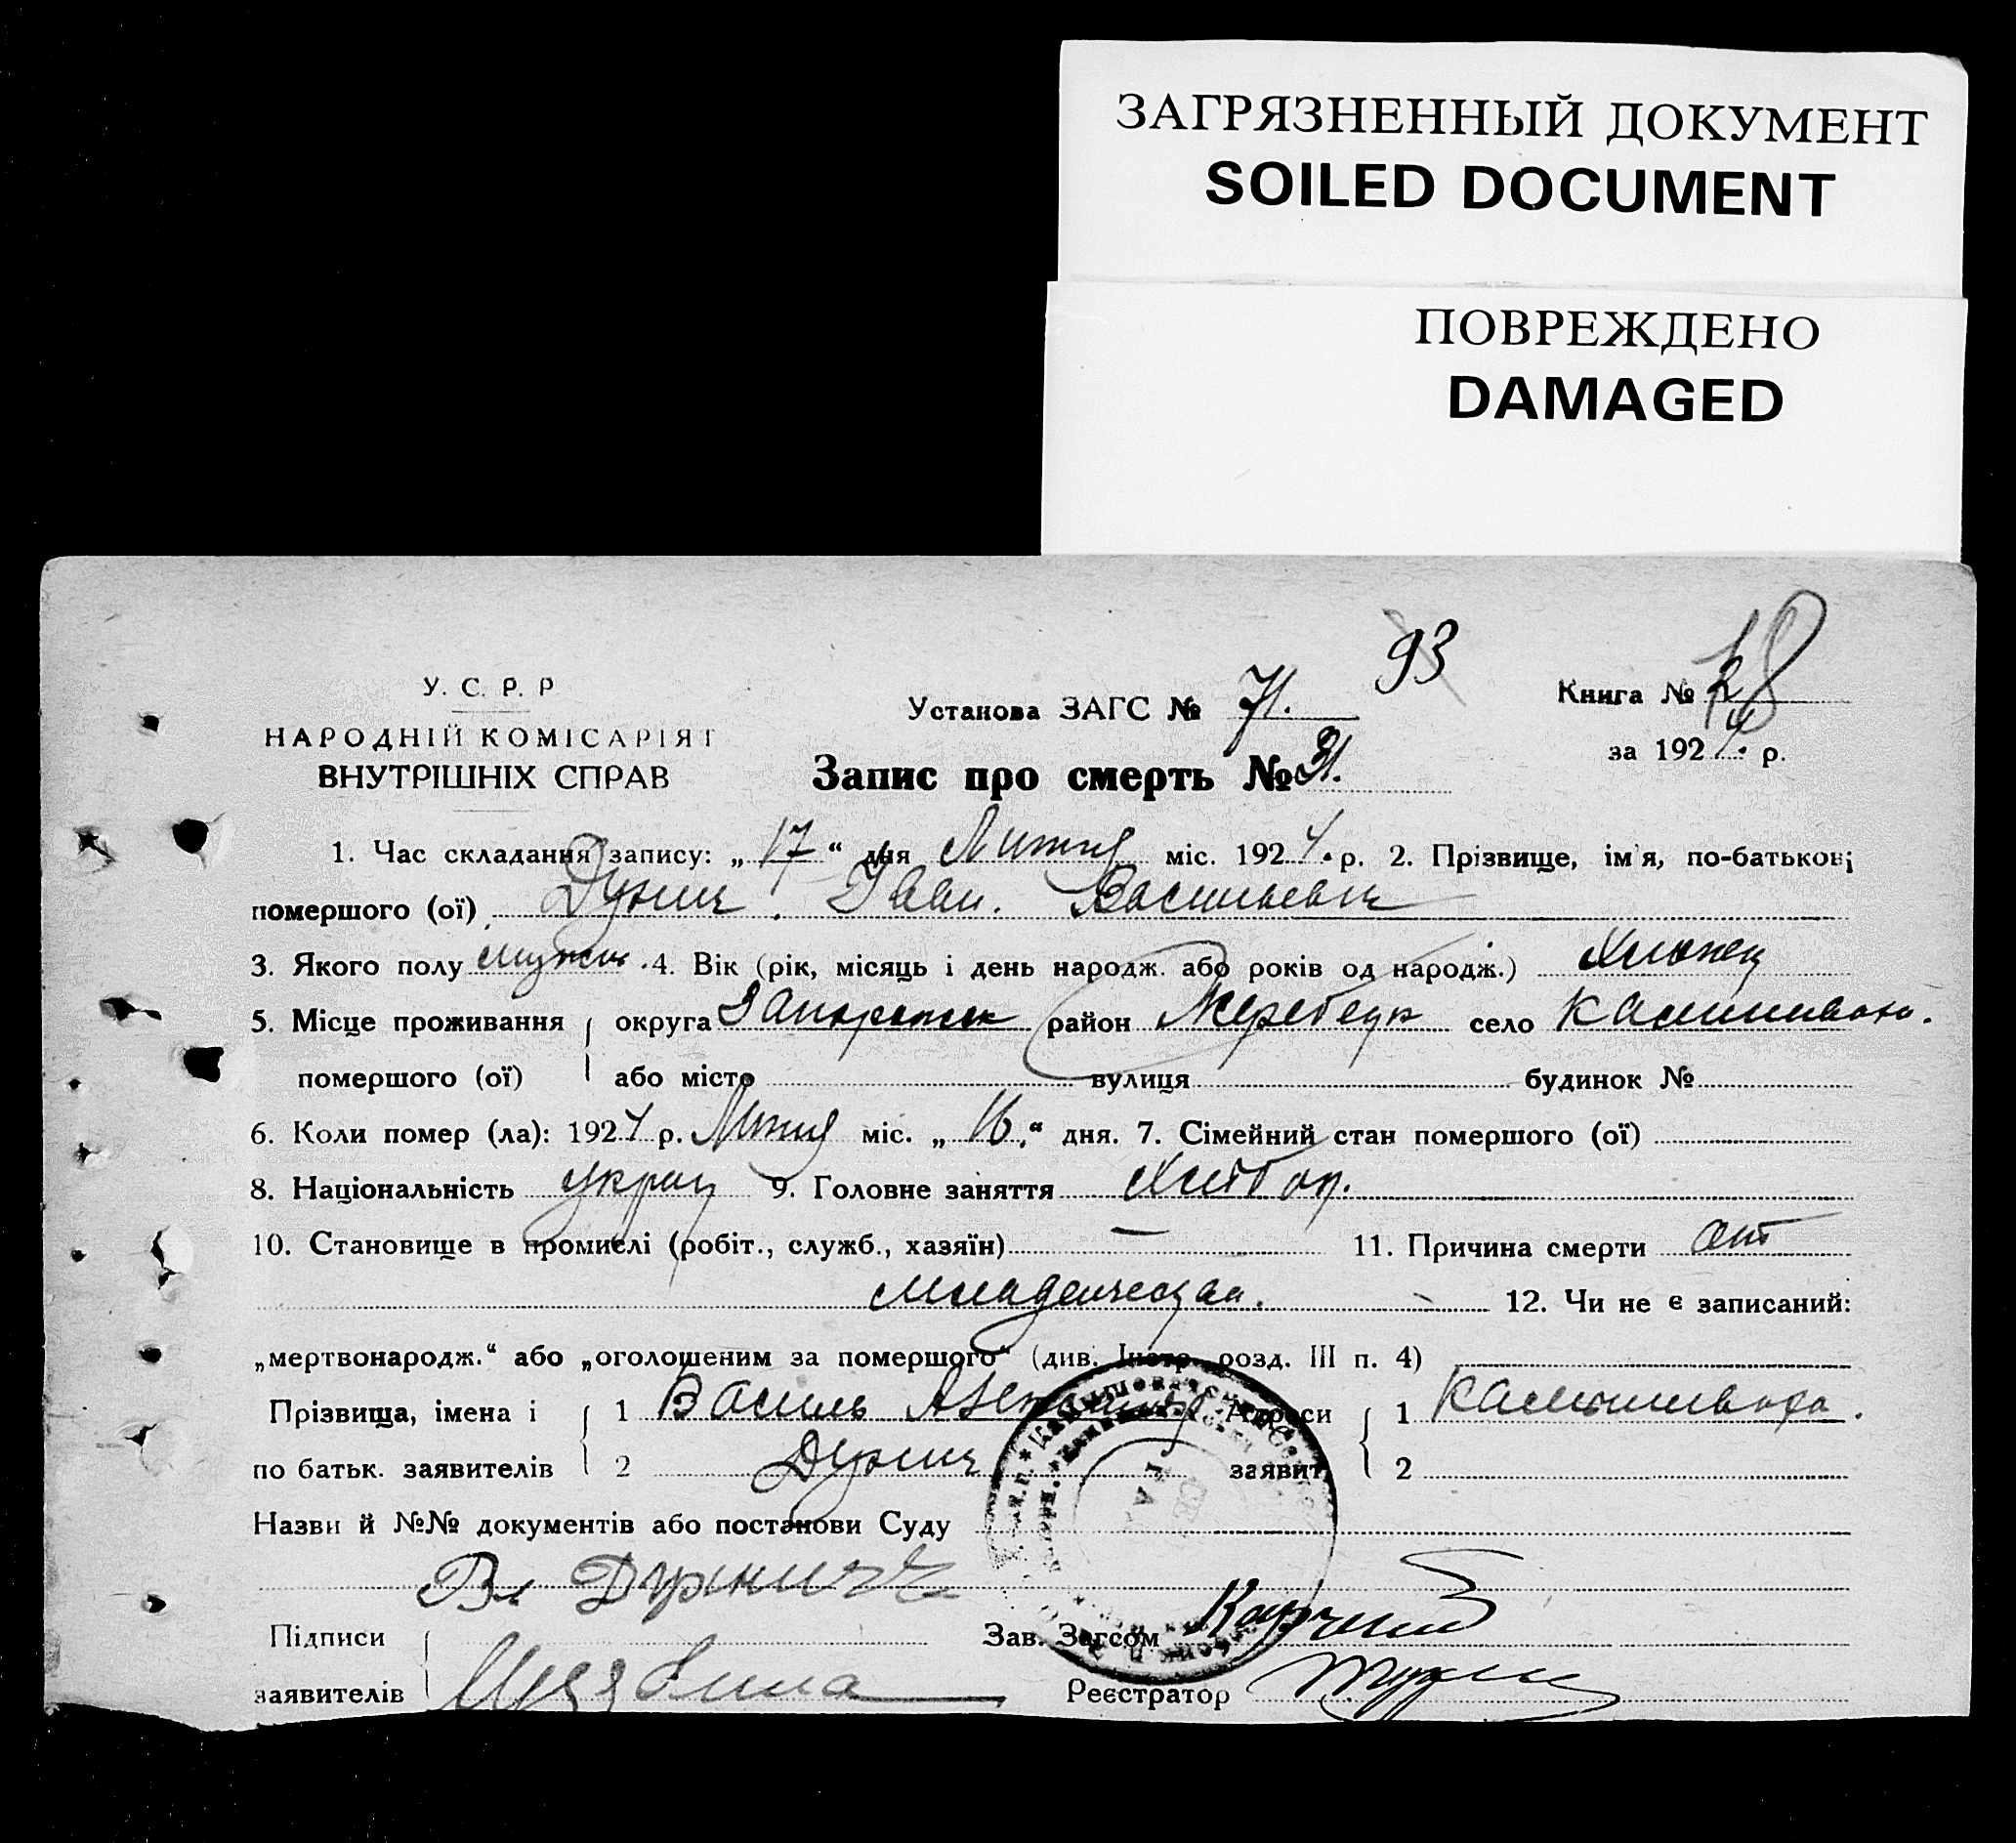 ЗАГРЯЗНЕННЫЙ ДОКУМЕНТ
SOILED DOCUMENT
ПОВРЕЖДЕНО
DAMAGED
93
У. С. Р. Р
НАРОДНІЙ КОМІСАРІЯТ
ВНУТРІШНІХ СПРАВ
Установа ЗАГС № 71.
Запис про смерть № 31.
Книга №
за 1924. р.
1. Час складання запису: „17“ дня Лютня міс. 1924. р. 2. Прізвище, ім'я, по-батькові
помершого (ої) Іван. Васильевич
3. Якого полу мужск. 4. Вік (рік, місяць і день народж. або років од народж.)
5. Місце проживання округа Запорожск район Жеребецк село Камишеваха.
помершого (ої) або місто вулиця будинок №
6. Коли помер (ла): 1924 р. Лютня міс. „16.“ дня. 7. Сімейний стан помершого (ої)
8. Національність украц 9. Головне заняття Хлібор.
10. Становище в промислі (робіт., служб., хазяїн) — 11. Причина смерти от
младенческая. 12. Чи не є записаний:
„мертвонародж.“ або „оголошеним за помершого“ (див. Інстр. розд. III п. 4)
Прізвища, імена і 1 Василь Адреси 1 Камышеваха.
по батьк. заявителів 2 заявит. 2
Назви й №№ документів або постанови Суду
Підписи Зав. Загсом
заявителів Реєстратор